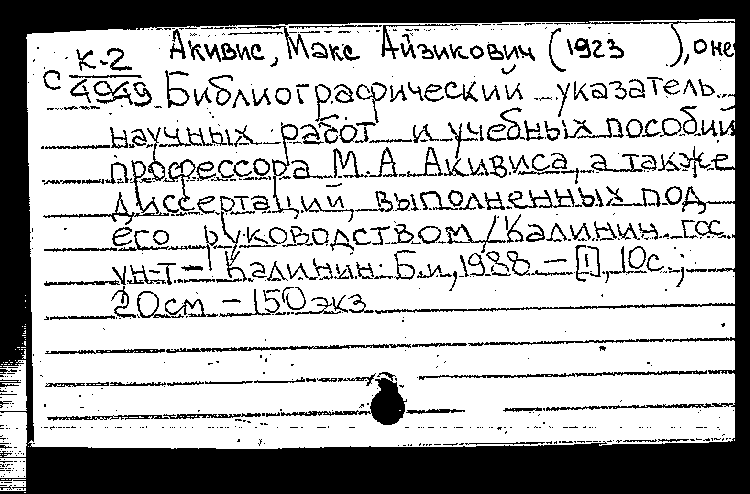 К-2 Акивис, Макс Айзикович (1923 ), о не
С 4949 Библиографический указатель
научных работ и учебных пособий
профессора М.А. Акивиса, а также
диссертаций, выполненных под
его руководством/Калинин. гос.
ун-т – Калинин: Б.и, 1988. – [1], 10с.;
20см – 150экз